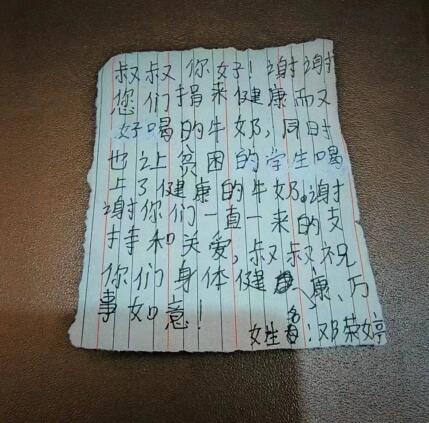 叔叔你好!谢谢
您们捐来健康而又
好喝的牛奶,同时
也让贫困的学生喝
上了健康的牛奶。谢
谢你们一直一来的支
持和关爱,叔叔祝
你们身体健康、万
事如意!
女生名:邓荣婷